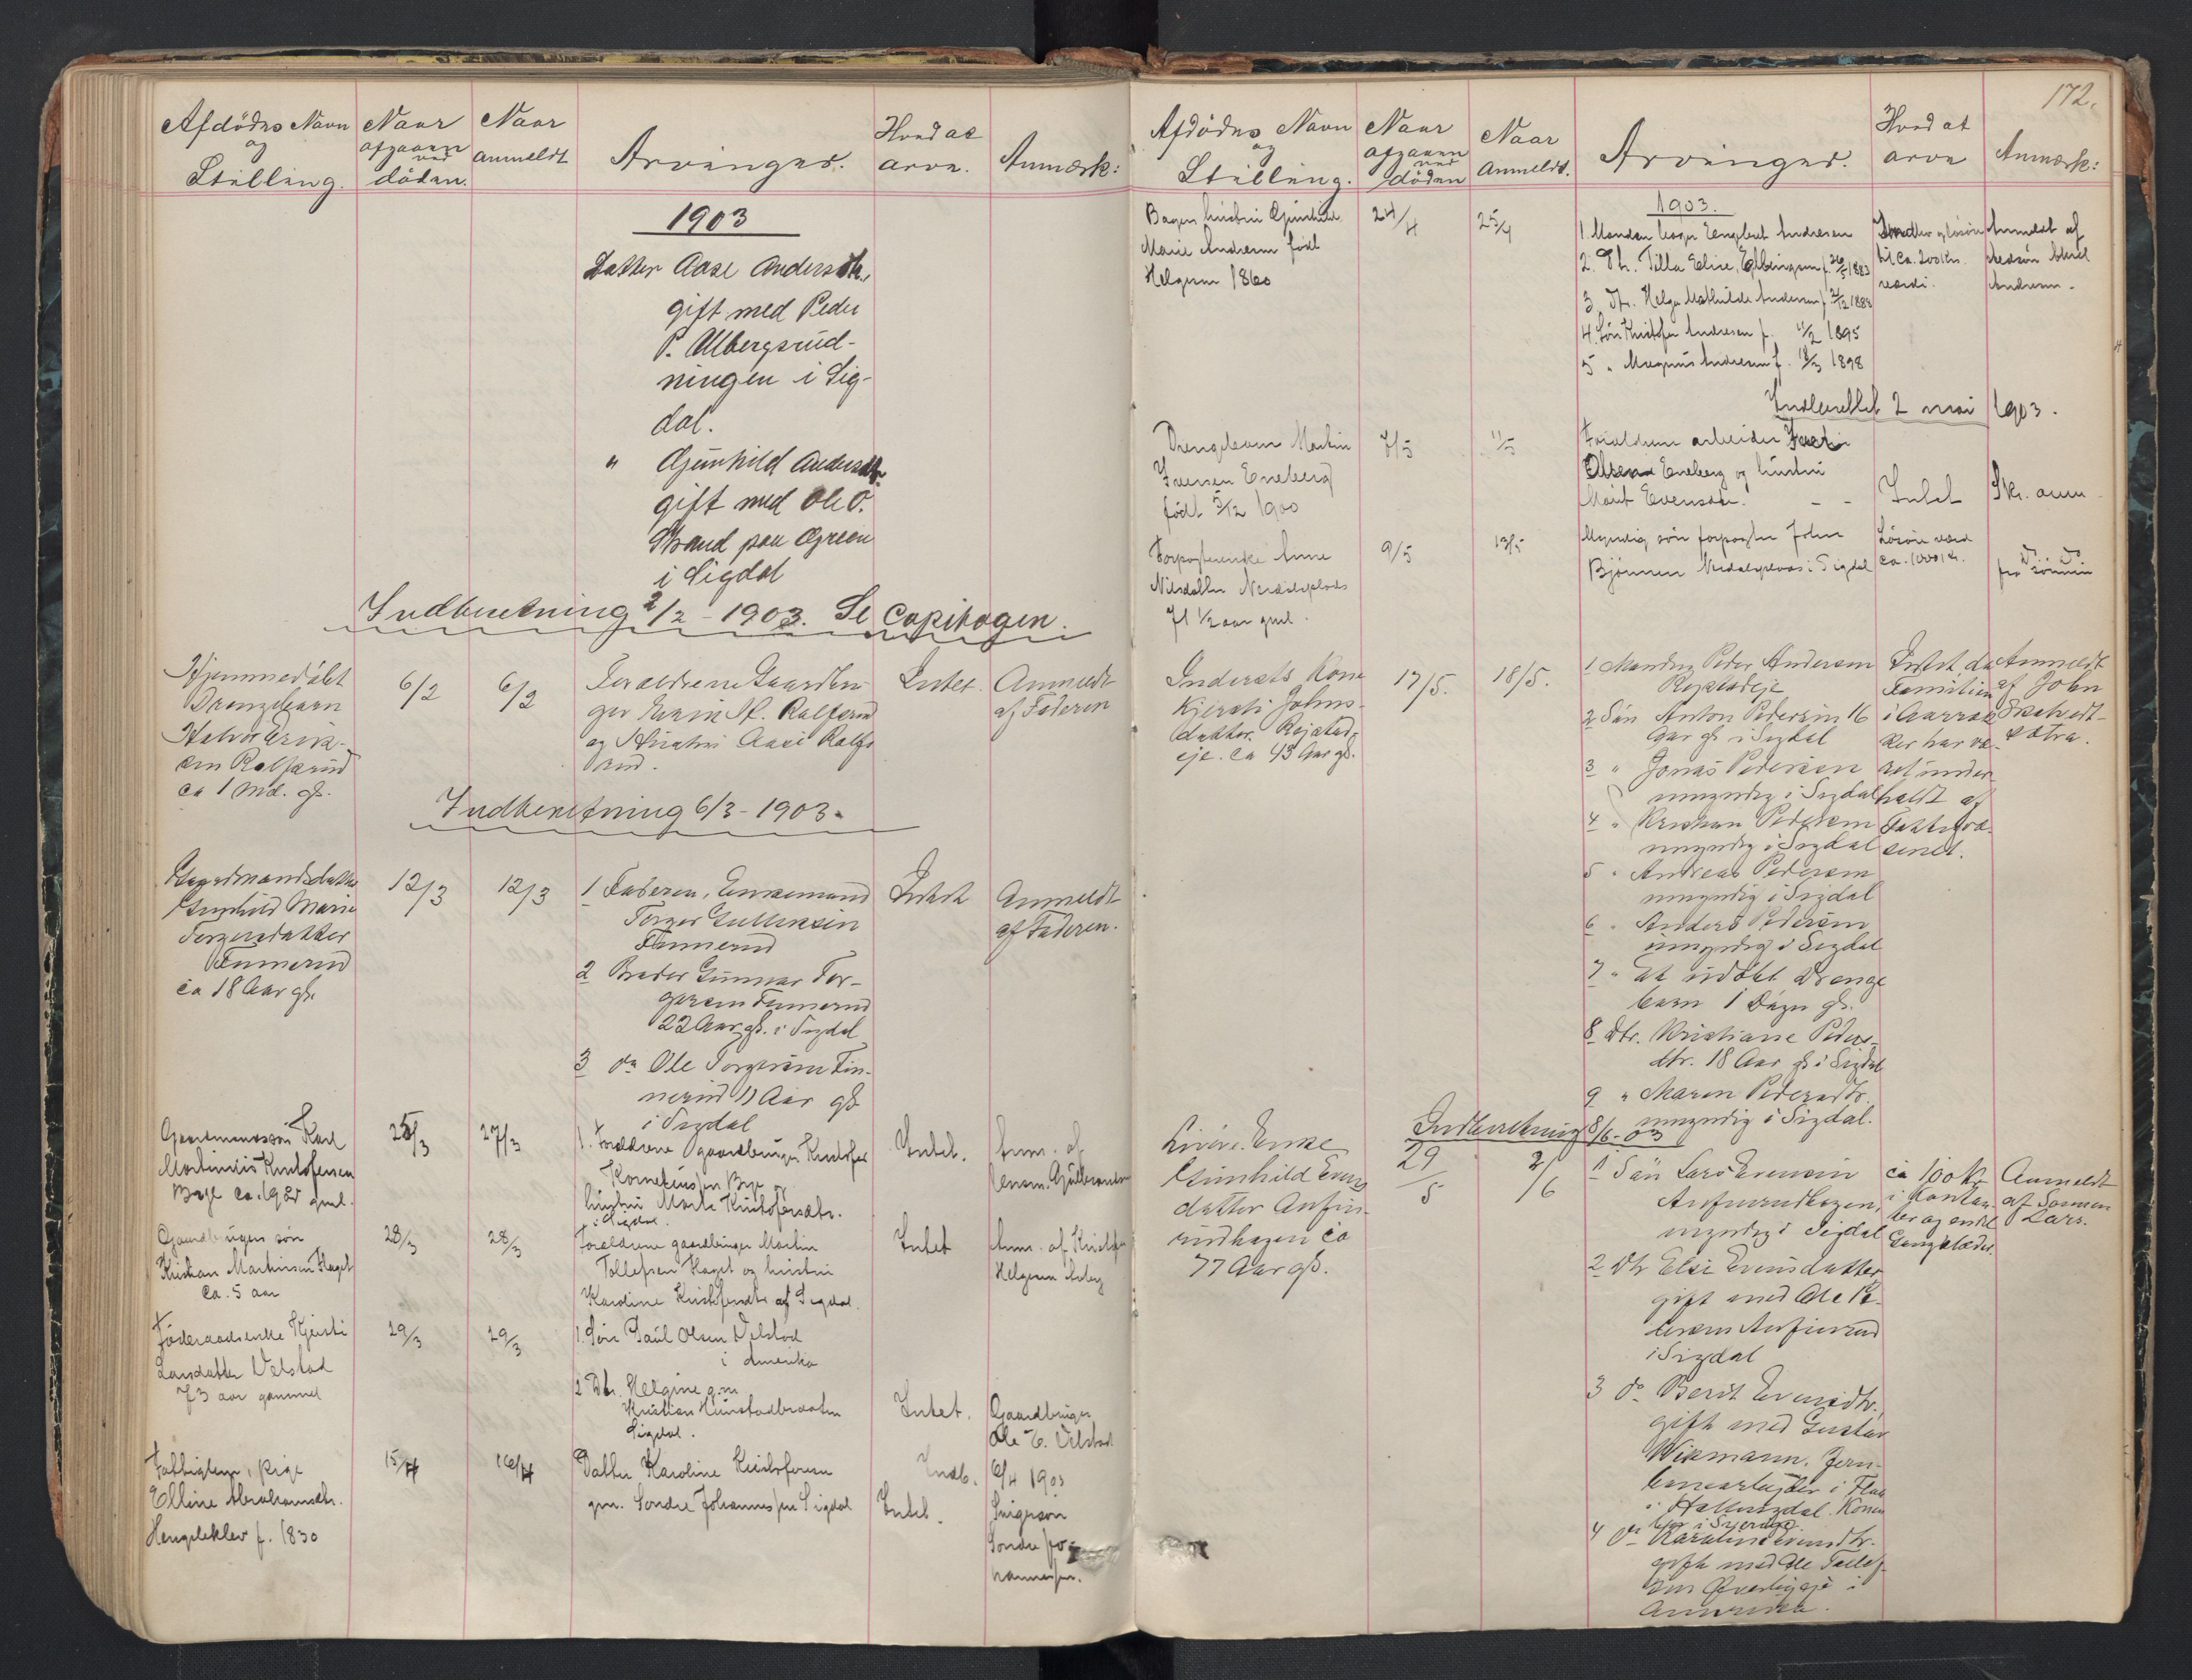 Afdödes Navn
og
Stilling.
Naar
afgaaen
ved
döden.
Naar
anmeldt
Arvinger.
Hvad at
arve.
Anmærk:
1903
Datter Aase Andersdtr.
gift med Peder
P. Albergsrud-
ningen i Sig-
dal.
" Gunhild Andersdtr.
gift med Ole O.
Strand paa Green
i Sigdal
Indberetning 2/2 - 1903.
Hjemmedöbt
Drengebarn
Halvor Erik-
sen Rolfsrud
ca 1 Md. gl.
6/2
6/2
Forældrene Gaardbru-
ger Rolfsrud
og Hustru Aase Rolfs
rud.
Intet.
Anmeldt
af Faderen
Indberetning 6/3 - 1903.
Gaardmandsdatter
Gunhild Marie
Torgersdatter
Finnerud
ca 18 Aar gl.
12/3
12/3
1 Faderen, Enkemand
Torger Gulliksen
Finnerud
2 Broder Gunnar Tor-
gersen Finnerud
22 Aar gl. i Sigdal
3 do Ole Torgersen Fin-
nerud 17 Aar gl
i Sigdal
Intet
Anmeldt
af Faderen.
Gaardmandssön Karl
Martinius Kristofersen
Bage ca. gml.
25/3
27/3
1. Forældrene gaardbruger Kristofer
Kornelius/en Bye og
hustru Marte Kristofersdtr.
i Sigdal.
Intet.
Anm. af
Lensm. Gulbrandsen
Gaardbrugers sön
Kristian Martinsen Haget
Ca. 5 aar
28/3
28/3
Forældrene gaardbruger Martin
Tollefsen Haget og hustru
Karoline Kristofersdtr af Sigdal.
Intet
Anm. af Kristofer
Helgesen
Föderaadsenke Kjersti
Larsdatter Velstad
73 aar gammel
29/3
29/3
1. Sön Paul Olsen Velstad
i Amerika
2 Dtr. Helgine g.m.
Kristian Hunstadbraaten
Sigdal.
Intet.
Gaardbruger
Ole E. Velstad
Indb. 6/4 1903
Fattiglem, pige
Elline Abrahamsdtr.
Hengeleklev f. 1830
15/4
16/4
Datter Karoline Kristofersen
gm. Sondre Johannes/en Sigdal
Intet.
Svigersön
Sondre Jo-
hannes/en.
172.
Afdödes Navn
og
Stilling.
Naar
afgaaen
ved
döden
Naar
Anmeldt.
Arvinger.
Hvad at
arve
Anmærk:
1903.
Bager hustru Gunhild
Marie Andresen födt
Helgesen 1860
24/4
25/4
1. Manden bager Engebret Andresen
2. Dtr. Tilla Elise f. 26/5 1883
3 Dtr. Helga Mathilde Andersen f. 2/12 1888
4. Sön Kristofer Andresen f. 11/2 1895
5 " Magnus Andresen f. 18/3 1898
og lösöre
til ca. 200 Kr.
værdi.
Anmeldt af
Andresen.
Indberettet 2 mai 1903.
Drengebarn Martin
Iversen Eneberg
födt 5/12 1900
7/5
11/5
Forældrene arbeider Iver
Olsen Eneberg og hustru
Marit Evensdtr. - -
Intet
Skr. anm
Forpagterenke Anne
Nilsdatter
71 1/2 aar gml.
9/5
13/5
Myndig sön forpagter John
Bjørnsen i Sigdal
Lösöre værd
ca. 1000 kr.
Do Do
fra sönnen
Inderst. Kone
Kjersti Johns-
datter. Rejstad-
eje. ca 43 Aar gl.
17/5.
18/5.
1 Manden Peder Andersen
Rejstadeje
2 Sön Anton Pedersen 16
Aar gl. i Sigdal
3 " Jonas Pedersen
umyndig i Sigdal
4 " Kristian Pedersen
umyndig i Sigdal
5 " Andreas Pedersen
umyndig i Sigdal
6 " Anders Pedersen
umyndig i Sigdal
7 " Et udöbt Drenge
barn 1 Dögn gl.
8 Dtr. Kristiane Peders-
dtr. 18 Aar gl i Sigdal
9 " Maren Pedersdtr.
umyndig i Sigdal.
Intet da
Familien
i Aarræk-
ker har væ-
ret under-
holdt af
Fattigvæ-
senet.
Anmeldt
af John
Indberetning 8/6 - 03
Enke
Gunhild Evens
datter Anfin-
rudhagen ca
77 Aar gl.
29/5
2/6
1 Sön Lars Evensen
Anfinrudhagen,
myndig i Sigdal
2 Dtr Elsi Evensdatter
gift med Ole Pe-
dersen Anfinrud
i Sigdal
3 do Berit Evensdtr.
gift med Gustav
Wikmann, Jern-
banearbejder i Flaa
i Hallingdal. Konen
bor i Sverige.
4 do Karoline Evensdtr.
gift med Ole Tollef-
sen i
Amerika.
ca 100 Kr
i Kontan-
ter og endel
Gangklæder.
Anmeldt
af Sönnen
Lars.